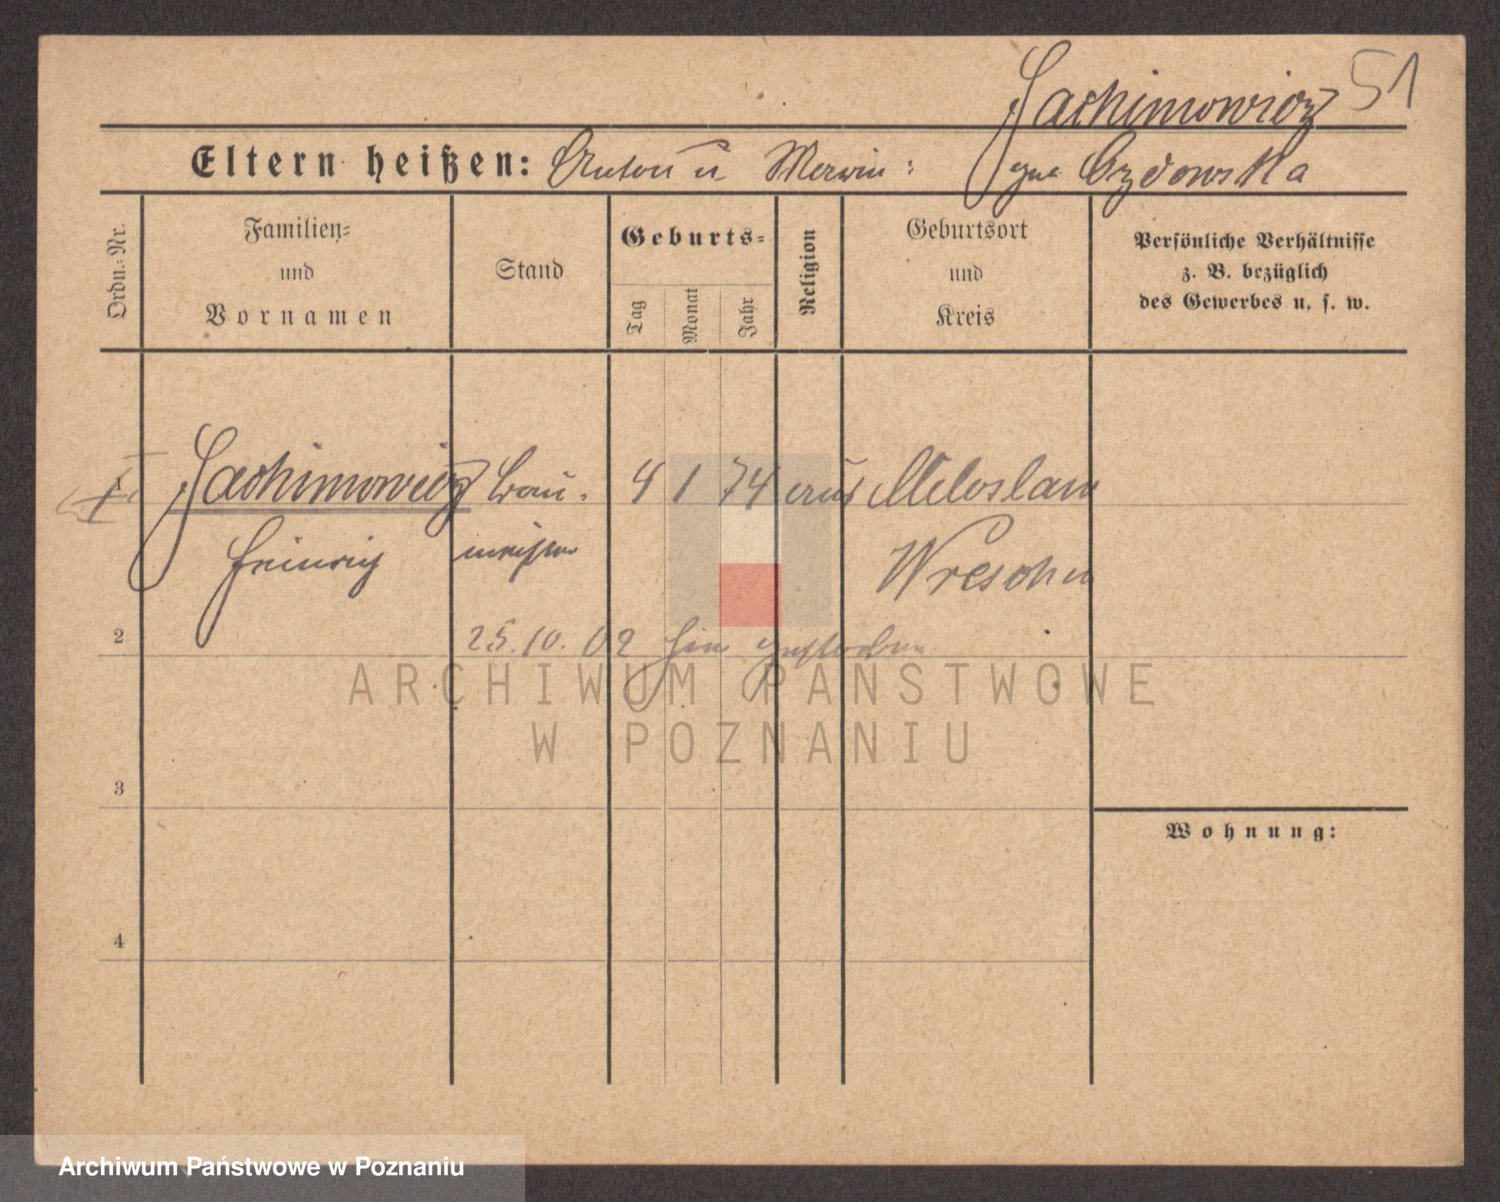 Jachimowicz 51
Eltern heißen: Anton u
Ordn.-Nr.
Familien-
und
Vornamen
Stand
Geburts-
Tag
Monat
Jahr
Religion
Geburtsort
und
Kreis
Persönliche Verhältnisse
z. B. bezüglich
des Gewerbes u. s. w.
1 Jachimowicz Bau- 4 1 74 aus Miloslaw
Heinrich meister Wreschen
2 25.10.02 hier gestorben
3
Wohnung:
4
ARCHIWUM PAŃSTWOWE
W POZNANIU
Archiwum Państwowe w Poznaniu